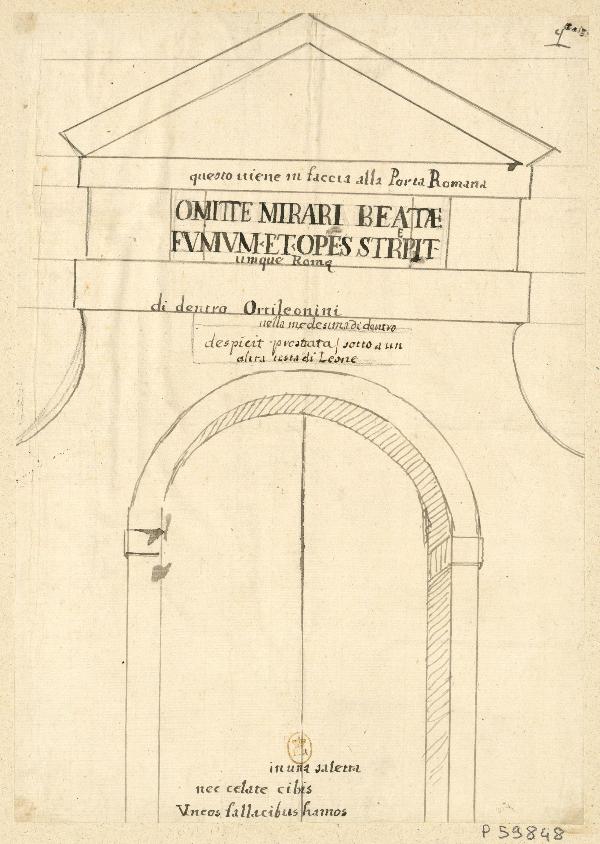 questo viene in faccia alla Porta Romana
OMITTE MIRARI BEATÆ
FVMVM·ET·OPES STREPIT
umque Romę
di dentro Ortileonini
nella medesima di dentro
despicit prostrata / sotto a un
altra testa di Leone
in una saletta
nec celate cibis
Vncos fallacibus hamos
P 59848